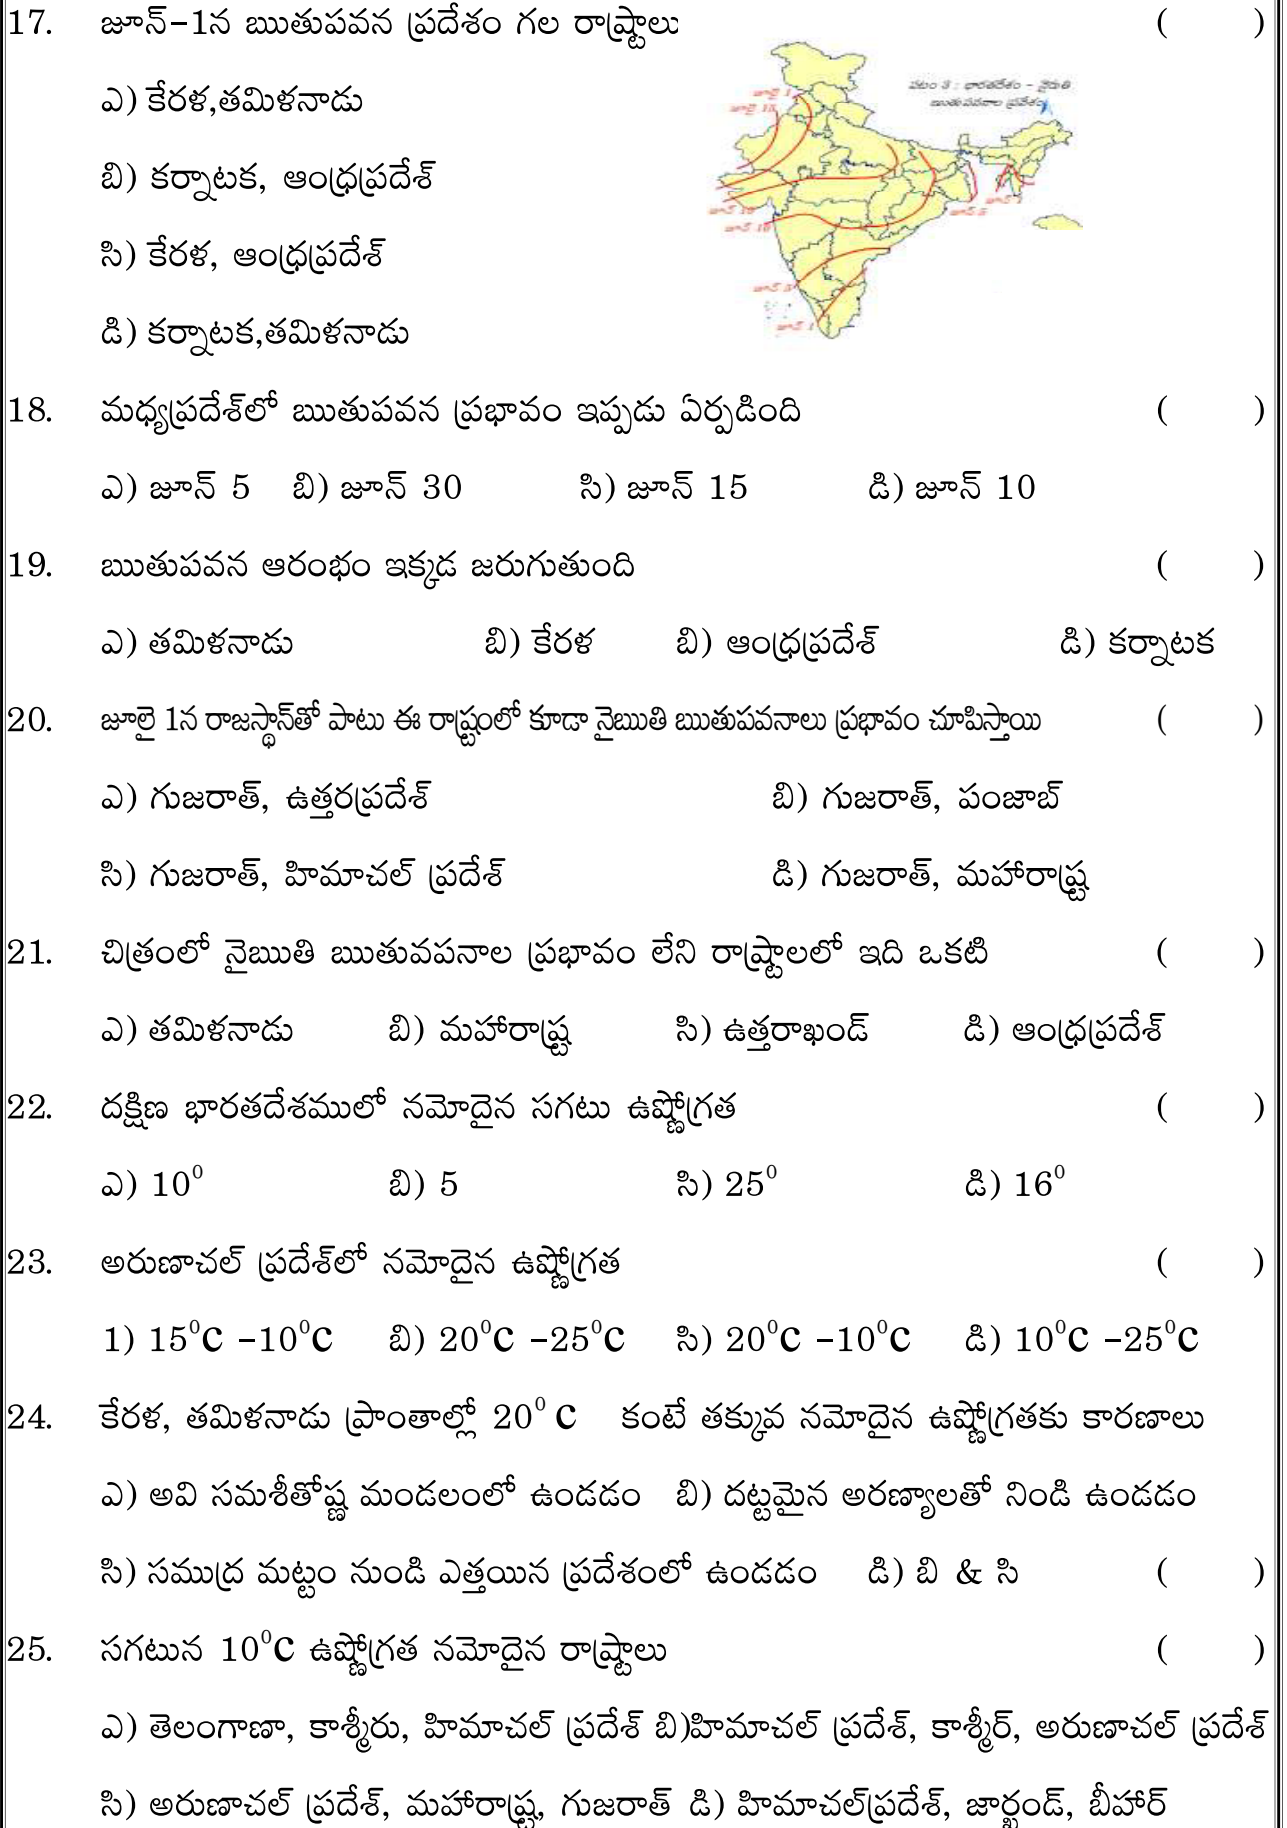 17. జూన్-1న ఋతుపవన ప్రదేశం గల రాష్ట్రాలు ( )
పటం 3 : భారతదేశం - నైరుతి
ఋతుపవనాల ప్రవేశం
ఎ) కేరళ,తమిళనాడు
జూలై 1
జూలై 15
బి) కర్నాటక, ఆంధ్రప్రదేశ్
జూన్ 1
జూన్ 5
జూన్ 10
సి) కేరళ, ఆంధ్రప్రదేశ్
జూన్ 5
జూన్ 1
డి) కర్నాటక,తమిళనాడు
18. మధ్యప్రదేశ్‌లో ఋతుపవన ప్రభావం ఇప్పడు ఏర్పడింది ( )
ఎ) జూన్ 5 బి) జూన్ 30 సి) జూన్ 15 డి) జూన్ 10
19. ఋతుపవన ఆరంభం ఇక్కడ జరుగుతుంది ( )
ఎ) తమిళనాడు బి) కేరళ బి) ఆంధ్రప్రదేశ్ డి) కర్నాటక
20. జూలై 1న రాజస్థాన్‌తో పాటు ఈ రాష్ట్రంలో కూడా నైఋతి ఋతుపవనాలు ప్రభావం చూపిస్తాయి ( )
ఎ) గుజరాత్, ఉత్తరప్రదేశ్ బి) గుజరాత్, పంజాబ్
సి) గుజరాత్, హిమాచల్ ప్రదేశ్ డి) గుజరాత్, మహారాష్ట్ర
21. చిత్రంలో నైఋతి ఋతువపనాల ప్రభావం లేని రాష్ట్రాలలో ఇది ఒకటి ( )
ఎ) తమిళనాడు బి) మహారాష్ట్ర సి) ఉత్తరాఖండ్ డి) ఆంధ్రప్రదేశ్
22. దక్షిణ భారతదేశములో నమోదైన సగటు ఉష్ణోగ్రత ( )
ఎ) 10⁰ బి) 5 సి) 25⁰ డి) 16⁰
23. అరుణాచల్ ప్రదేశ్‌లో నమోదైన ఉష్ణోగ్రత ( )
1) 15⁰C -10⁰C బి) 20⁰C -25⁰C సి) 20⁰C -10⁰C డి) 10⁰C -25⁰C
24. కేరళ, తమిళనాడు ప్రాంతాల్లో 20⁰ C కంటే తక్కువ నమోదైన ఉష్ణోగ్రతకు కారణాలు
ఎ) అవి సమశీతోష్ణ మండలంలో ఉండడం బి) దట్టమైన అరణ్యాలతో నిండి ఉండడం
సి) సముద్ర మట్టం నుండి ఎత్తయిన ప్రదేశంలో ఉండడం డి) బి & సి ( )
25. సగటున 10⁰C ఉష్ణోగ్రత నమోదైన రాష్ట్రాలు ( )
ఎ) తెలంగాణా, కాశ్మీరు, హిమాచల్ ప్రదేశ్ బి)హిమాచల్ ప్రదేశ్, కాశ్మీర్, అరుణాచల్ ప్రదేశ్
సి) అరుణాచల్ ప్రదేశ్, మహారాష్ట్ర, గుజరాత్ డి) హిమాచల్‌ప్రదేశ్, జార్ఖండ్, బీహార్